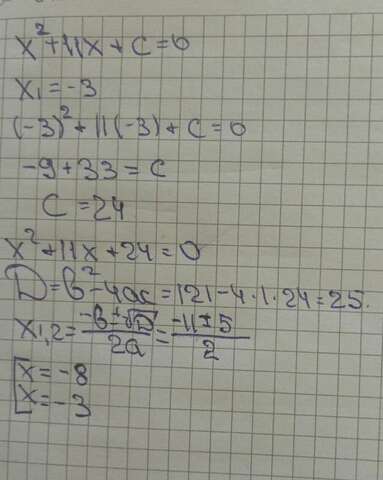 x² + 11x + c = 0
x₁ = -3
(-3)² + 11(-3) + c = 0
-9 + 33 = c
c = 24
x² + 11x + 24 = 0
D = b² - 4ac = 121 - 4 · 1 · 24 = 25.
x₁,₂ = (-b ± √D)/2a = (-11 ± 5)/2
[x = -8
[x = -3